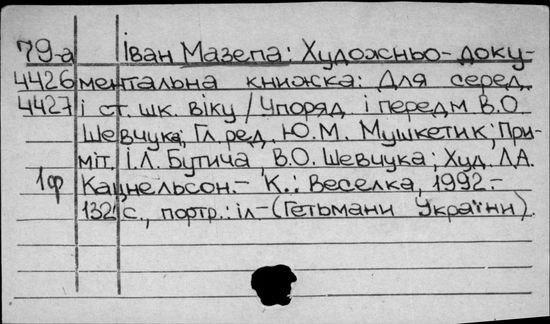 79-а Іван Мазепа: Художньо-доку-
4426 ментальна книжка: Для серед.
4427 і ст. шк. віку / Упоряд. і передм В.О.
Шевчука, Гл. ред. Ю.М. Мушкетик; При-
міт. І.Л. Бутича, В.О. Шевчука; Худ. Л.А.
1ф Кацнельсон.- К.: Веселка, 1992.-
132 с., портр.: іл-(Гетьмани України).